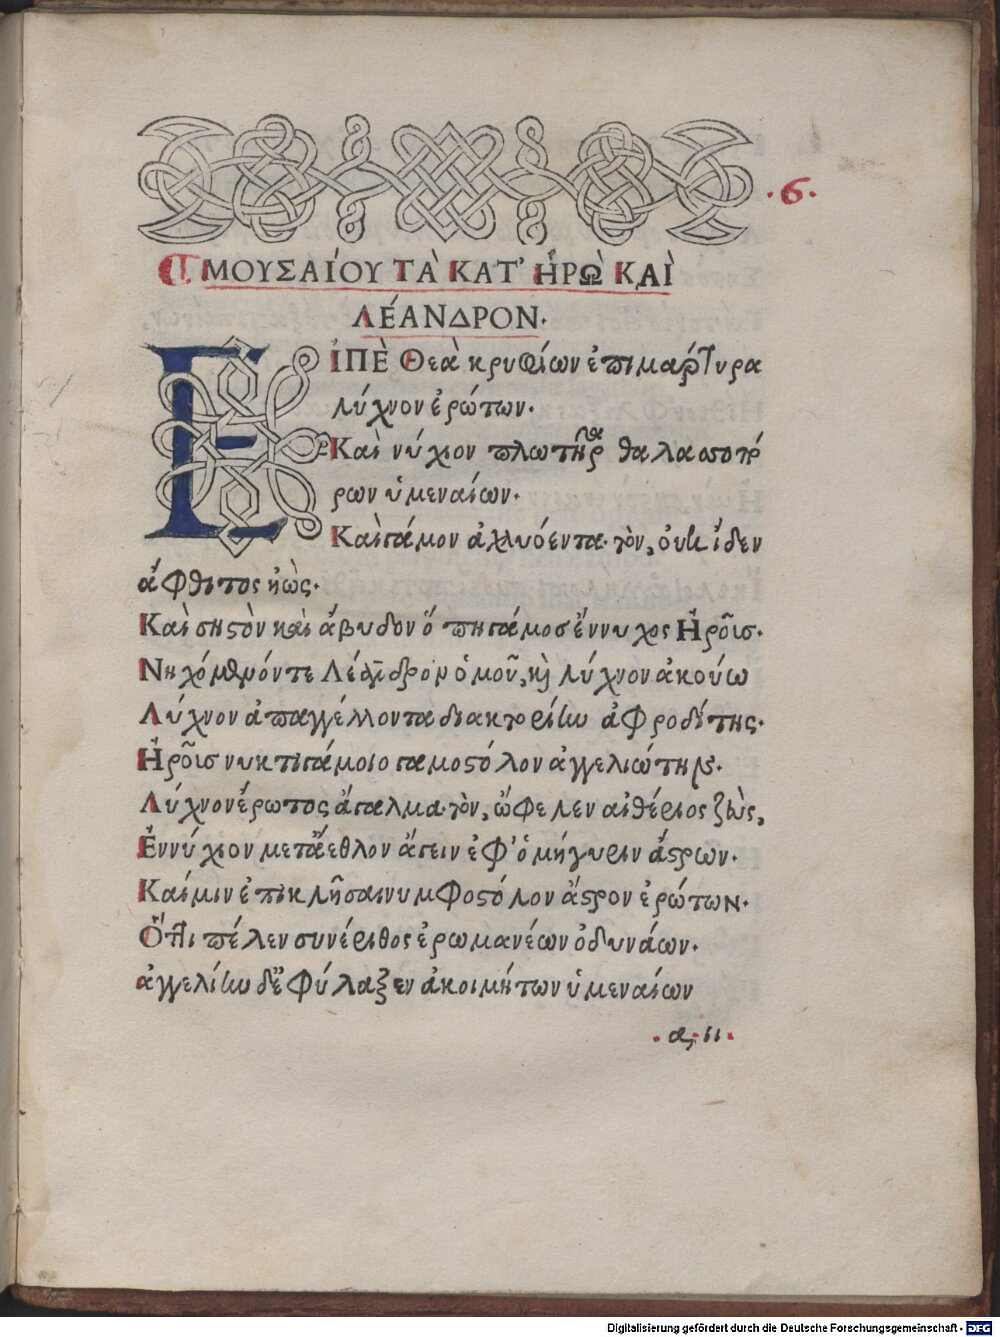 ·6·
ΜΟΥΣΑΊΟΥ ΤᾺ ΚΑΤ' ἩΡῺ ΚΑῚ
ΛΈΑΝΔΡΟΝ·
ΕἸΠῈ Θεὰ κρυφίων ἐπιμάρτυρα
λύχνον ἐρώτων·
Καὶ νύχιον πλωτῆρα θαλασσοπό
ρων ὑμεναίων·
Καὶ γάμον ἀχλυόεντα τὸν, οὐκ ἴδεν
ἄφθιτος ἠώς·
Καὶ σηστὸν καὶ ἄβυδον ὅπη γάμος ἔννυχος Ἡροῖς·
Νηχόμενόν τε Λέανδρον ὁμοῦ, καὶ λύχνον ἀκούω
Λύχνον ἀπαγγέλλοντα διακτορίην ἀφροδίτης·
Ἡροῖς νυκτιγάμοιο γαμοστόλον ἀγγελιώτην·
Λύχνον ἔρωτος ἄγαλμα τὸν, ὤφελεν αἰθέριος ζεὺς,
Ἐννύχιον μετ' ἄεθλον ἄγειν ἐφ' ὁμήγυριν ἄστρων·
Καί μιν ἐπικλῆσαι νυμφοστόλον ἄστρον ἐρώτων·
Ὅττι πέλεν συνέριθος ἐρωμανέων ὀδυνάων·
ἀγγελίην δ' ἐφύλαξεν ἀκοιμήτων ὑμεναίων
·α·ιι·
Digitalisierung gefördert durch die Deutsche Forschungsgemeinschaft - DFG